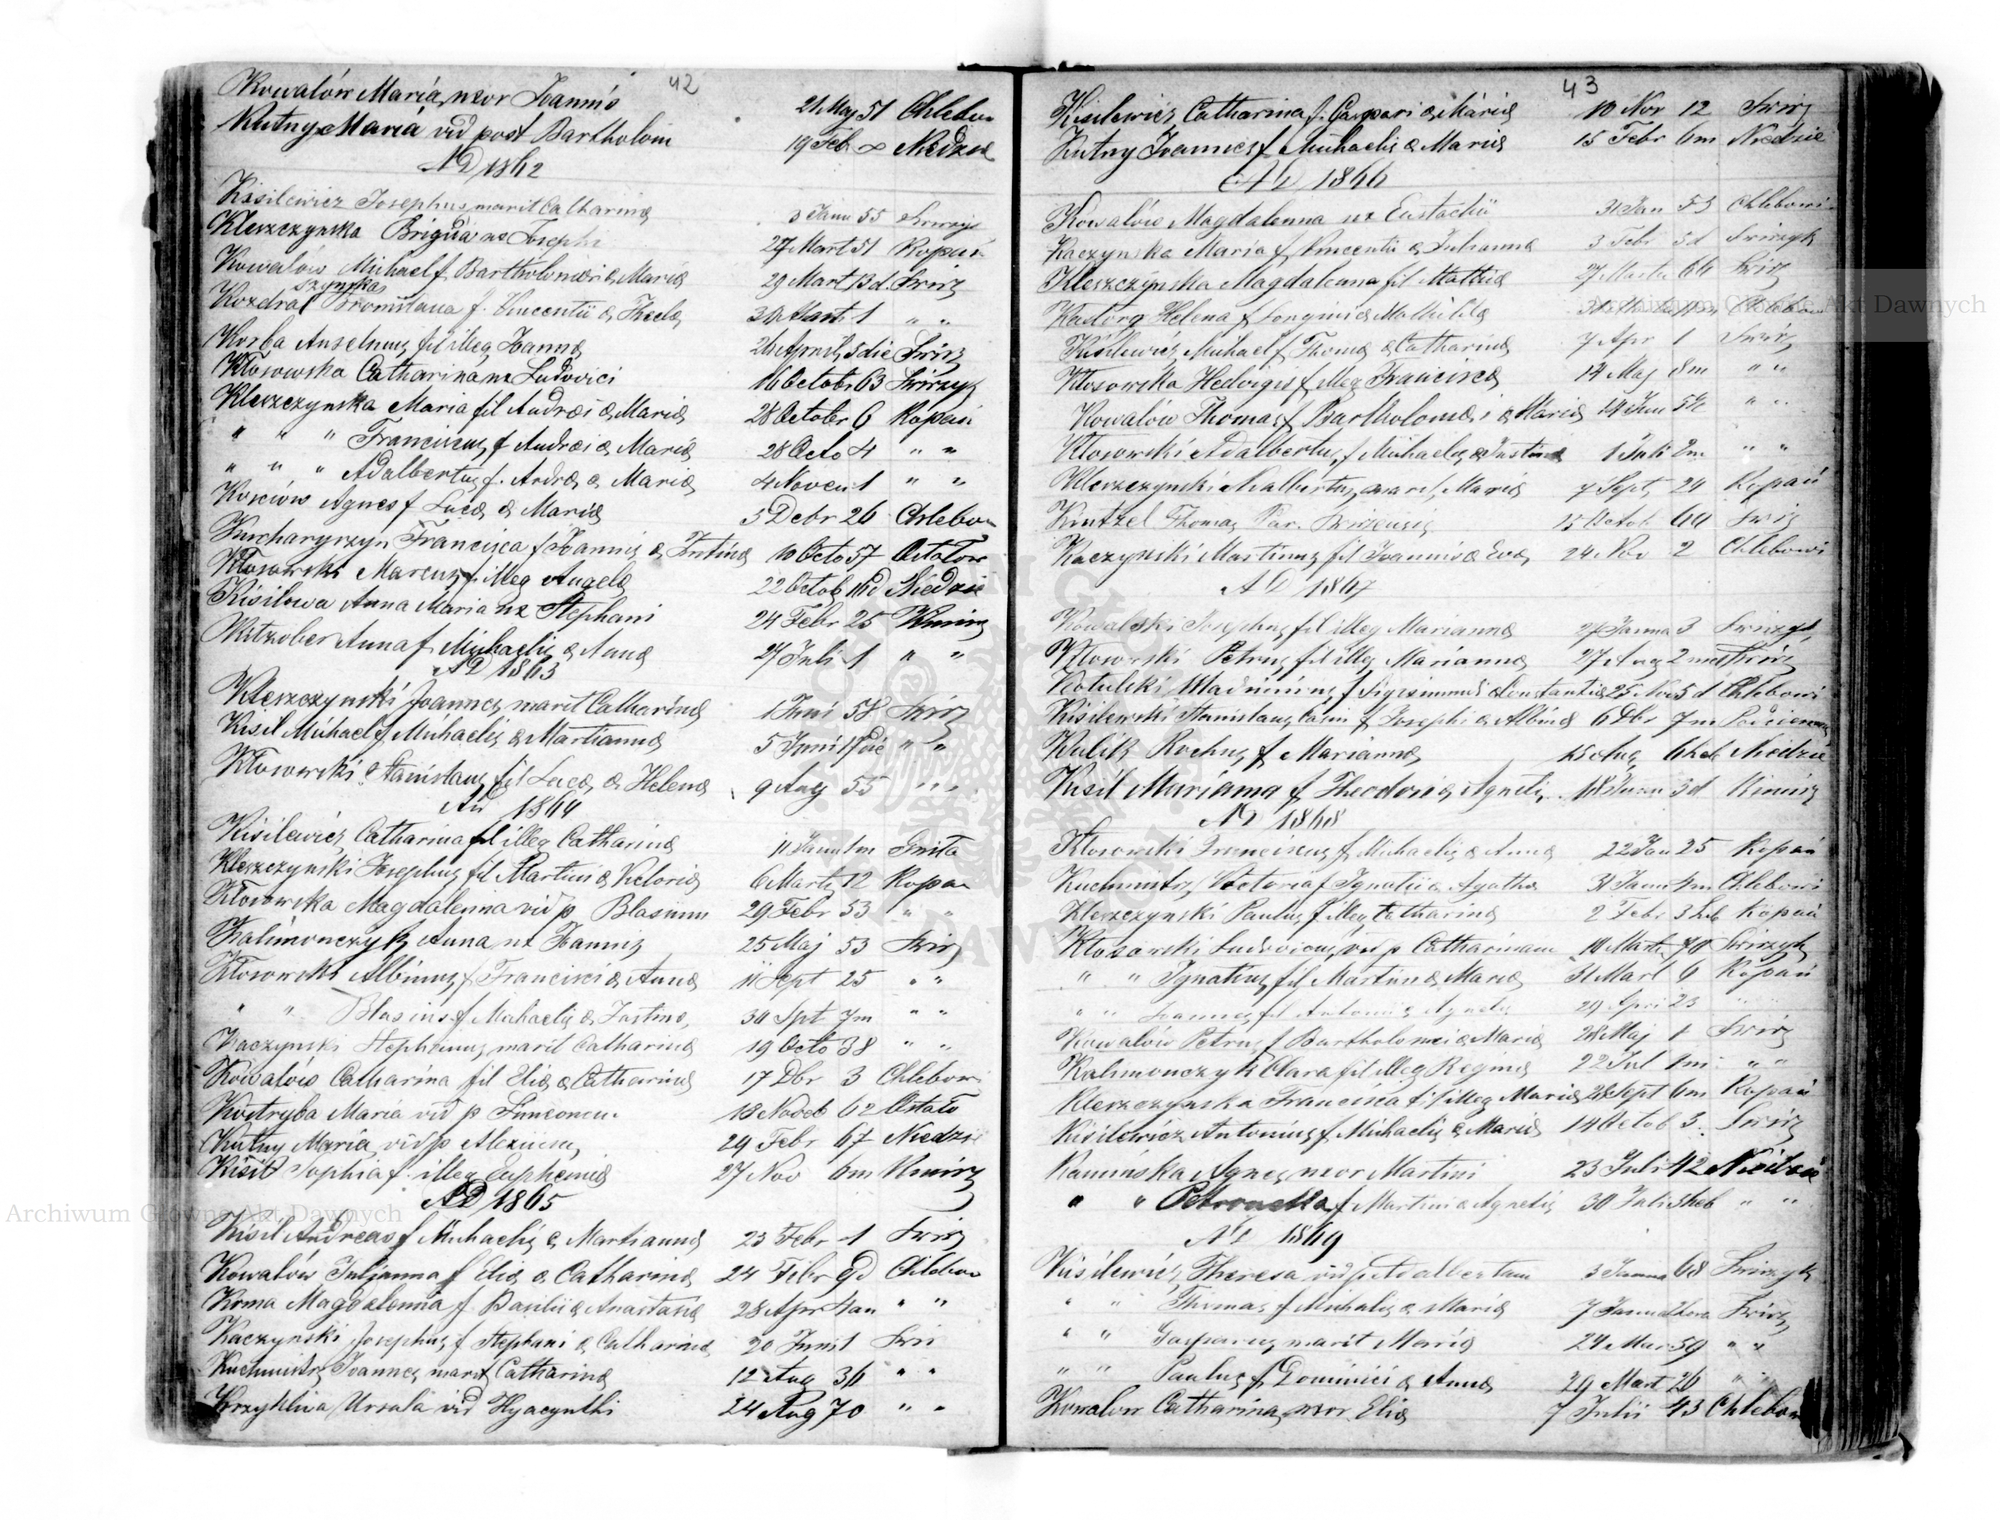 42
Kowalów Maria uxor Joannis 21 Maj 51 Chlebow
Kutny Maria vid post Bartholom 19 Feb Niedzie
AD 1862
Kisilewicz Josephus marit Catharinæ 3 Janu 55 Swirzyk
Kleszczynska Brigida ux Josephi 27 Mart 51 Kopań
Kowalów Michael f. Bartholomæi & Mariæ 29 Mart 13 d. Swirz
Kozdral szynska Bronislava f. Vincentii & Theclæ 31 Mart 1 " "
Korba Anselmus fil illeg Joannæ 26 April 5 die Swirz
Kłosowska Catharina ux Ludovici 16 Octobr 63 Swirzyk
Kleszczynska Maria fil Andræi & Mariæ 28 Octobr 6 Kopań
" " " Franciscus f Andræi & Mariæ 28 Octo 4 " "
" " " Adalbertus f. Andræ & Mariæ 4 Novem 1 " "
Kosciów Agnes f Lucæ & Mariæ 5 Decbr 26 Chlebow
Kucharyszyn Francisca f Joannis & Justinæ 10 Octo 57 Ostałow
Kłosowski Marcus f. illeg Angelæ 22 Octob Niedzie
Kisilowa Anna Maria ux Stephani 24 Febr 25 Kimirz
Kitzober Anna f Michaelis & Annæ 27 Juli 1 " "
AD 1863
Kleszczynski Joannes marit Catharinæ 1 Juni 58 Swirz
Kisil Michael f Michaelis & Martiannæ 5 Juni " "
Kłosowski Stanislaus fil Lucæ & Helenæ 9 Aug 55 " "
AD 1864
Kisilewicz Catharina fil illeg Catharinæ 11 Janu 1m
Kleszczynski Josephus fil Martini & Victoriæ 6 Marti 12 Kopań
Kłosowska Magdalenna vid p Blasium 29 Febr 53 " "
Kalimonczyk Anna ux Joannis 25 Maj 53 Swirz
Kłosowski Albinus f Francisci & Annæ 11 Sept 25 " "
" " Blasius f Michaelis & Justinæ 30 Spt 7m " "
Kaczynski Stephanus marit Catharinæ 19 Octo 38 " "
Kowalów Catharina fil Eliæ & Catharinæ 17 Dbr 3 Chlebow
Kostryba Maria vid p Simeonem 18 Noveb 62 Ostało
Kutny Maria vid p Alexium 29 Febr 67 Niedzie
Kisil Sophia f. illeg Euphemiæ 27 Nov 6m Kimirz
AD 1865
Kisil Andreas f Michaelis & Martiannæ 23 Febr 1 Swirz
Kowalów Julianna f Eliæ & Catharinæ 24 Febr 9d Chlebow
Koma Magdalenna f. Basilii & Anastasiæ 28 Apr 4an " "
Kaczynski Josephus f Stephani & Catharinæ 20 Juni 1 Swi
Kuchmistrz Joannes marit Catharinæ 12 Aug 36 " "
Krzykliwa Ursula vid Hyacynthi 24 Aug 70 " "
43
Kisilewicz Catharina f. Caspari & Mariæ 10 Nov 12 Swirz
Kutny Joannes f Michaelis & Mariæ 15 Febr 6m Niedzie
AD 1866
Kowalów Magdalenna ux Eustachii 31 Jan 53 Chlebowi
Kaczynska Maria f Vincentii & Juliannæ 3 Febr 5d Swirzyk
Kleszczynska Magdaleana fil Mathiæ 27 Martii 64 Swirz
Helena f Longini & Mathildæ
Kisilewicz Michael f Thomæ & Catharinæ 7 Apr 1 Swirz
Kłosowska Hedvigis f illeg Franciscæ 14 Maj 8m " "
Kowalów Thomas f Bartholomæi & Mariæ 14 Jun " "
Kłosowski Adalbertus f Michaelis & Justinæ 1 Juli 2m " "
Kleszczynski Adalbertus marit Mariæ 7 Sept 24 Kopań
Kintzel Thomas Par. Swirzensis 15 Octob 64 Swirz
Kaczynski Martinus fil Joannis & Evæ 24 Nov 2 Chlebowi
AD 1867
Kowalski Josephus fil illeg Mariannæ 27 Janua 3 Swirzyk
Kłosowski Petrus fil illeg Mariannæ 27 Aug 2 mes Swirz
Kotulski Wladimirus f Sigismundi & Constantiæ 25 Nov 5d Chlebowi
Kisilewski Stanislaus Casim f Josephi & Albinæ 6 Dbr 7m
Kulik Rochus f Mariannæ 15 Aug 6 heb Niedzie
Kisil Marianna f Theodori & Agnetis 18 Janu 3d Kimirz
AD 1868
Kłosowski Franciscus f Michaelis & Annæ 22 Jan 25 Kopań
Kuchmistrz Victoria f Ignatii & Agathæ 31 Janu 4m Chlebowi
Kleszczynski Paulus f illeg Catharinæ 2 Febr 3 heb Kopań
Kłosowski Ludovicus vid p Catharinam 10 Marti 70 Swirzyk
" " Ignatius fil Martini & Mariæ 31 Mart 6 Kopań
" " Joannes fil Antonii & Agnetis 29 April 23 " "
Kowalów Petrus f Bartholomei & Mariæ 28 Maj 1 Swirz
Kalimonczyk Clara fil illeg Reginæ 22 Jul 1m " "
Kleszczynska Francisca f illeg Mariæ 28 Sept 6m Kopań
Kisilewicz Antonius f Michaelis & Mariæ 14 Octob 3. Swirz
Kaminska Agnes uxor Martini 23 Juli 42 Niedzie
" " Petronella f Martini & Agnetis 30 Juli 3 heb " "
AD 1869
Kisilewicz Theresa vid p Adalbertum 3 Janua 68 Swirzyk
" " Thomas f Michalis & Mariæ 7 Janua Swirz
" " Gasparus marit Mariæ 24 Mar 59 " "
" " Paulus f Dominici & Annæ 29 Mart 26 " "
Kowalow Catharina uxor Eliæ 7 Julii 43 Chlebow
Archiwum Główne Akt Dawnych
Archiwum Główne Akt Dawnych